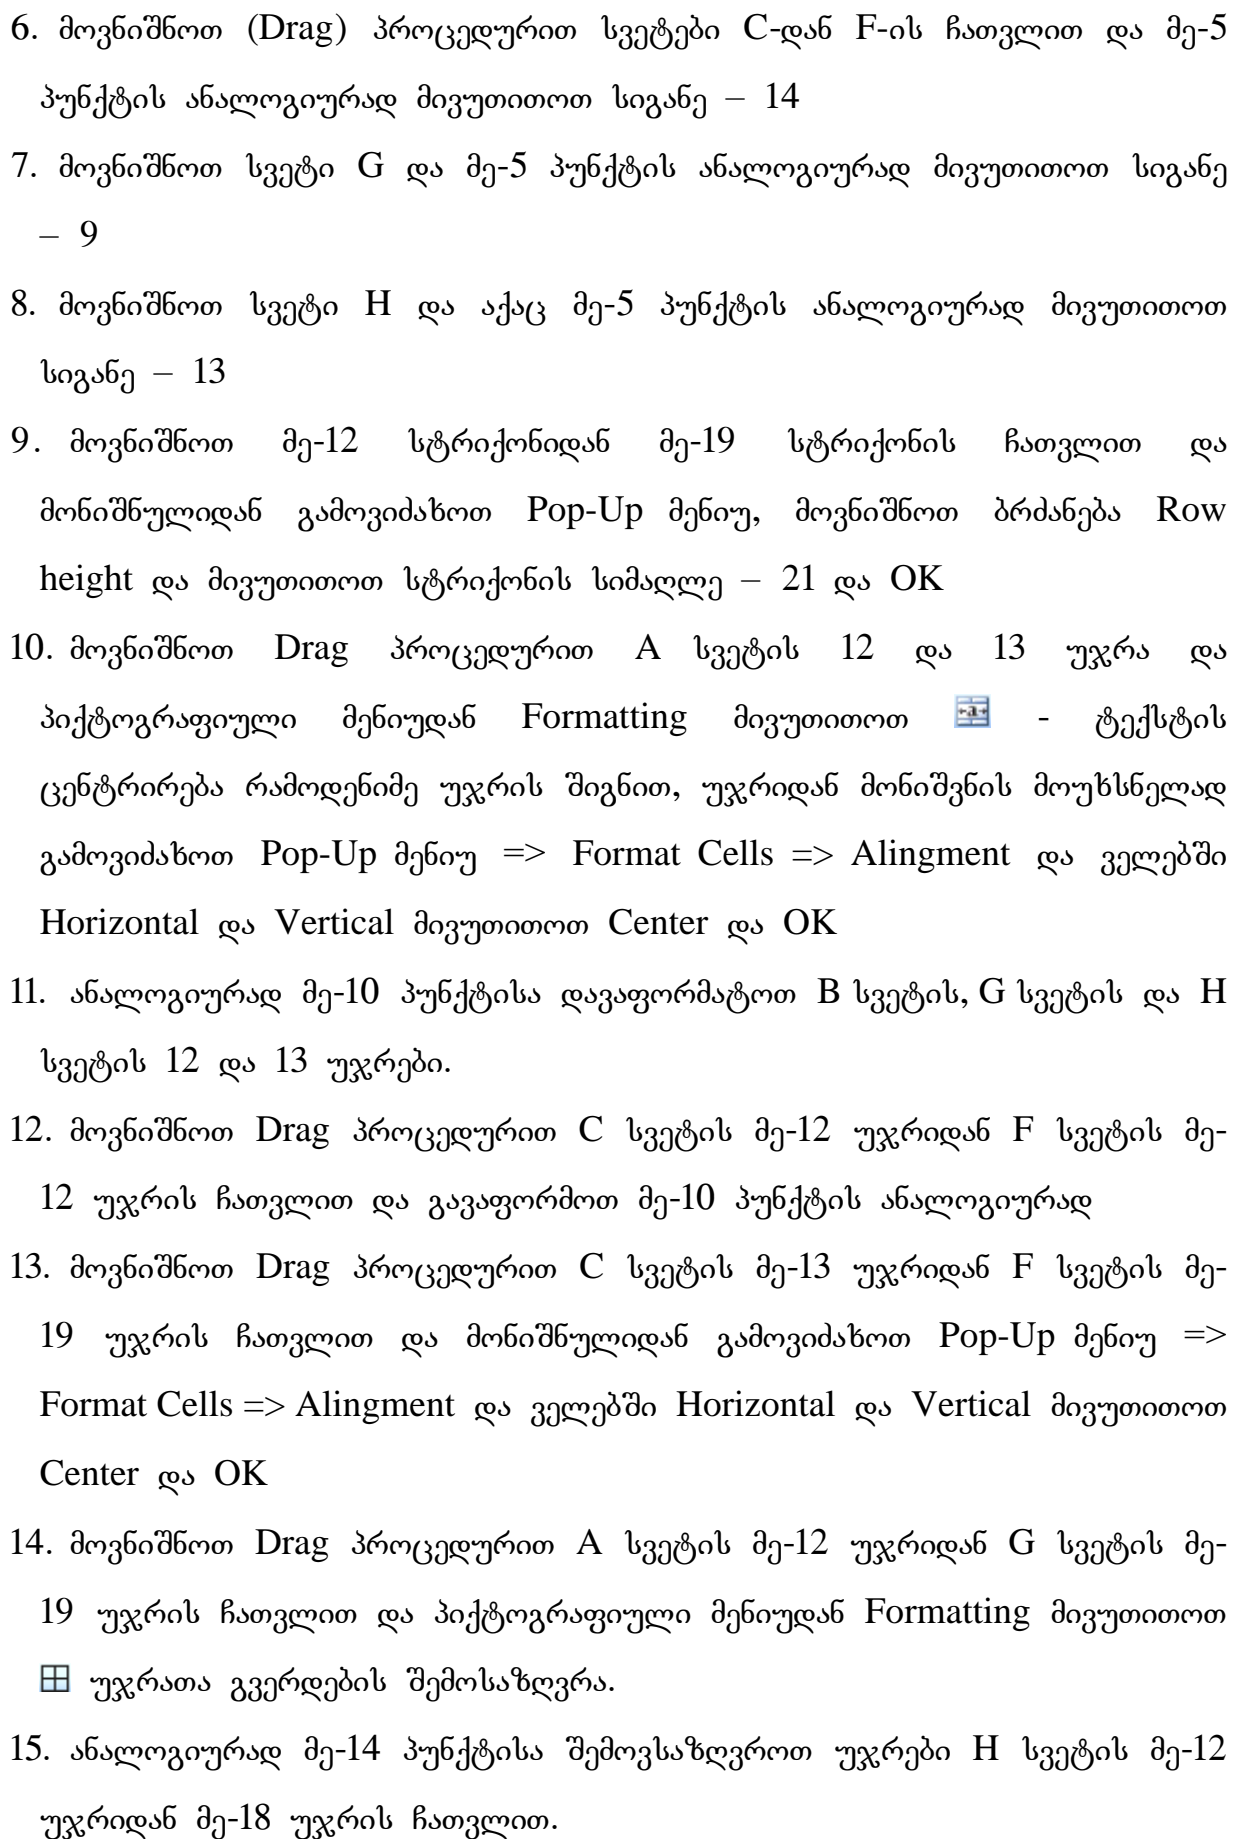 6. მოვნიშნოთ (Drag) პროცედურით სვეტები C-დან F-ის ჩათვლით და მე-5
პუნქტის ანალოგიურად მივუთითოთ სიგანე – 14
7. მოვნიშნოთ სვეტი G და მე-5 პუნქტის ანალოგიურად მივუთითოთ სიგანე
– 9
8. მოვნიშნოთ სვეტი H და აქაც მე-5 პუნქტის ანალოგიურად მივუთითოთ
სიგანე – 13
9. მოვნიშნოთ მე-12 სტრიქონიდან მე-19 სტრიქონის ჩათვლით და
მონიშნულიდან გამოვიძახოთ Pop-Up მენიუ, მოვნიშნოთ ბრძანება Row
height და მივუთითოთ სტრიქონის სიმაღლე – 21 და OK
10. მოვნიშნოთ Drag პროცედურით A სვეტის 12 და 13 უჯრა და
პიქტოგრაფიული მენიუდან Formatting მივუთითოთ - ტექსტის
ცენტრირება რამოდენიმე უჯრის შიგნით, უჯრიდან მონიშვნის მოუხსნელად
გამოვიძახოთ Pop-Up მენიუ => Format Cells => Alingment და ველებში
Horizontal და Vertical მივუთითოთ Center და OK
11. ანალოგიურად მე-10 პუნქტისა დავაფორმატოთ B სვეტის, G სვეტის და H
სვეტის 12 და 13 უჯრები.
12. მოვნიშნოთ Drag პროცედურით C სვეტის მე-12 უჯრიდან F სვეტის მე-
12 უჯრის ჩათვლით და გავაფორმოთ მე-10 პუნქტის ანალოგიურად
13. მოვნიშნოთ Drag პროცედურით C სვეტის მე-13 უჯრიდან F სვეტის მე-
19 უჯრის ჩათვლით და მონიშნულიდან გამოვიძახოთ Pop-Up მენიუ =>
Format Cells => Alingment და ველებში Horizontal და Vertical მივუთითოთ
Center და OK
14. მოვნიშნოთ Drag პროცედურით A სვეტის მე-12 უჯრიდან G სვეტის მე-
19 უჯრის ჩათვლით და პიქტოგრაფიული მენიუდან Formatting მივუთითოთ
უჯრათა გვერდების შემოსაზღვრა.
15. ანალოგიურად მე-14 პუნქტისა შემოვსაზღვროთ უჯრები H სვეტის მე-12
უჯრიდან მე-18 უჯრის ჩათვლით.